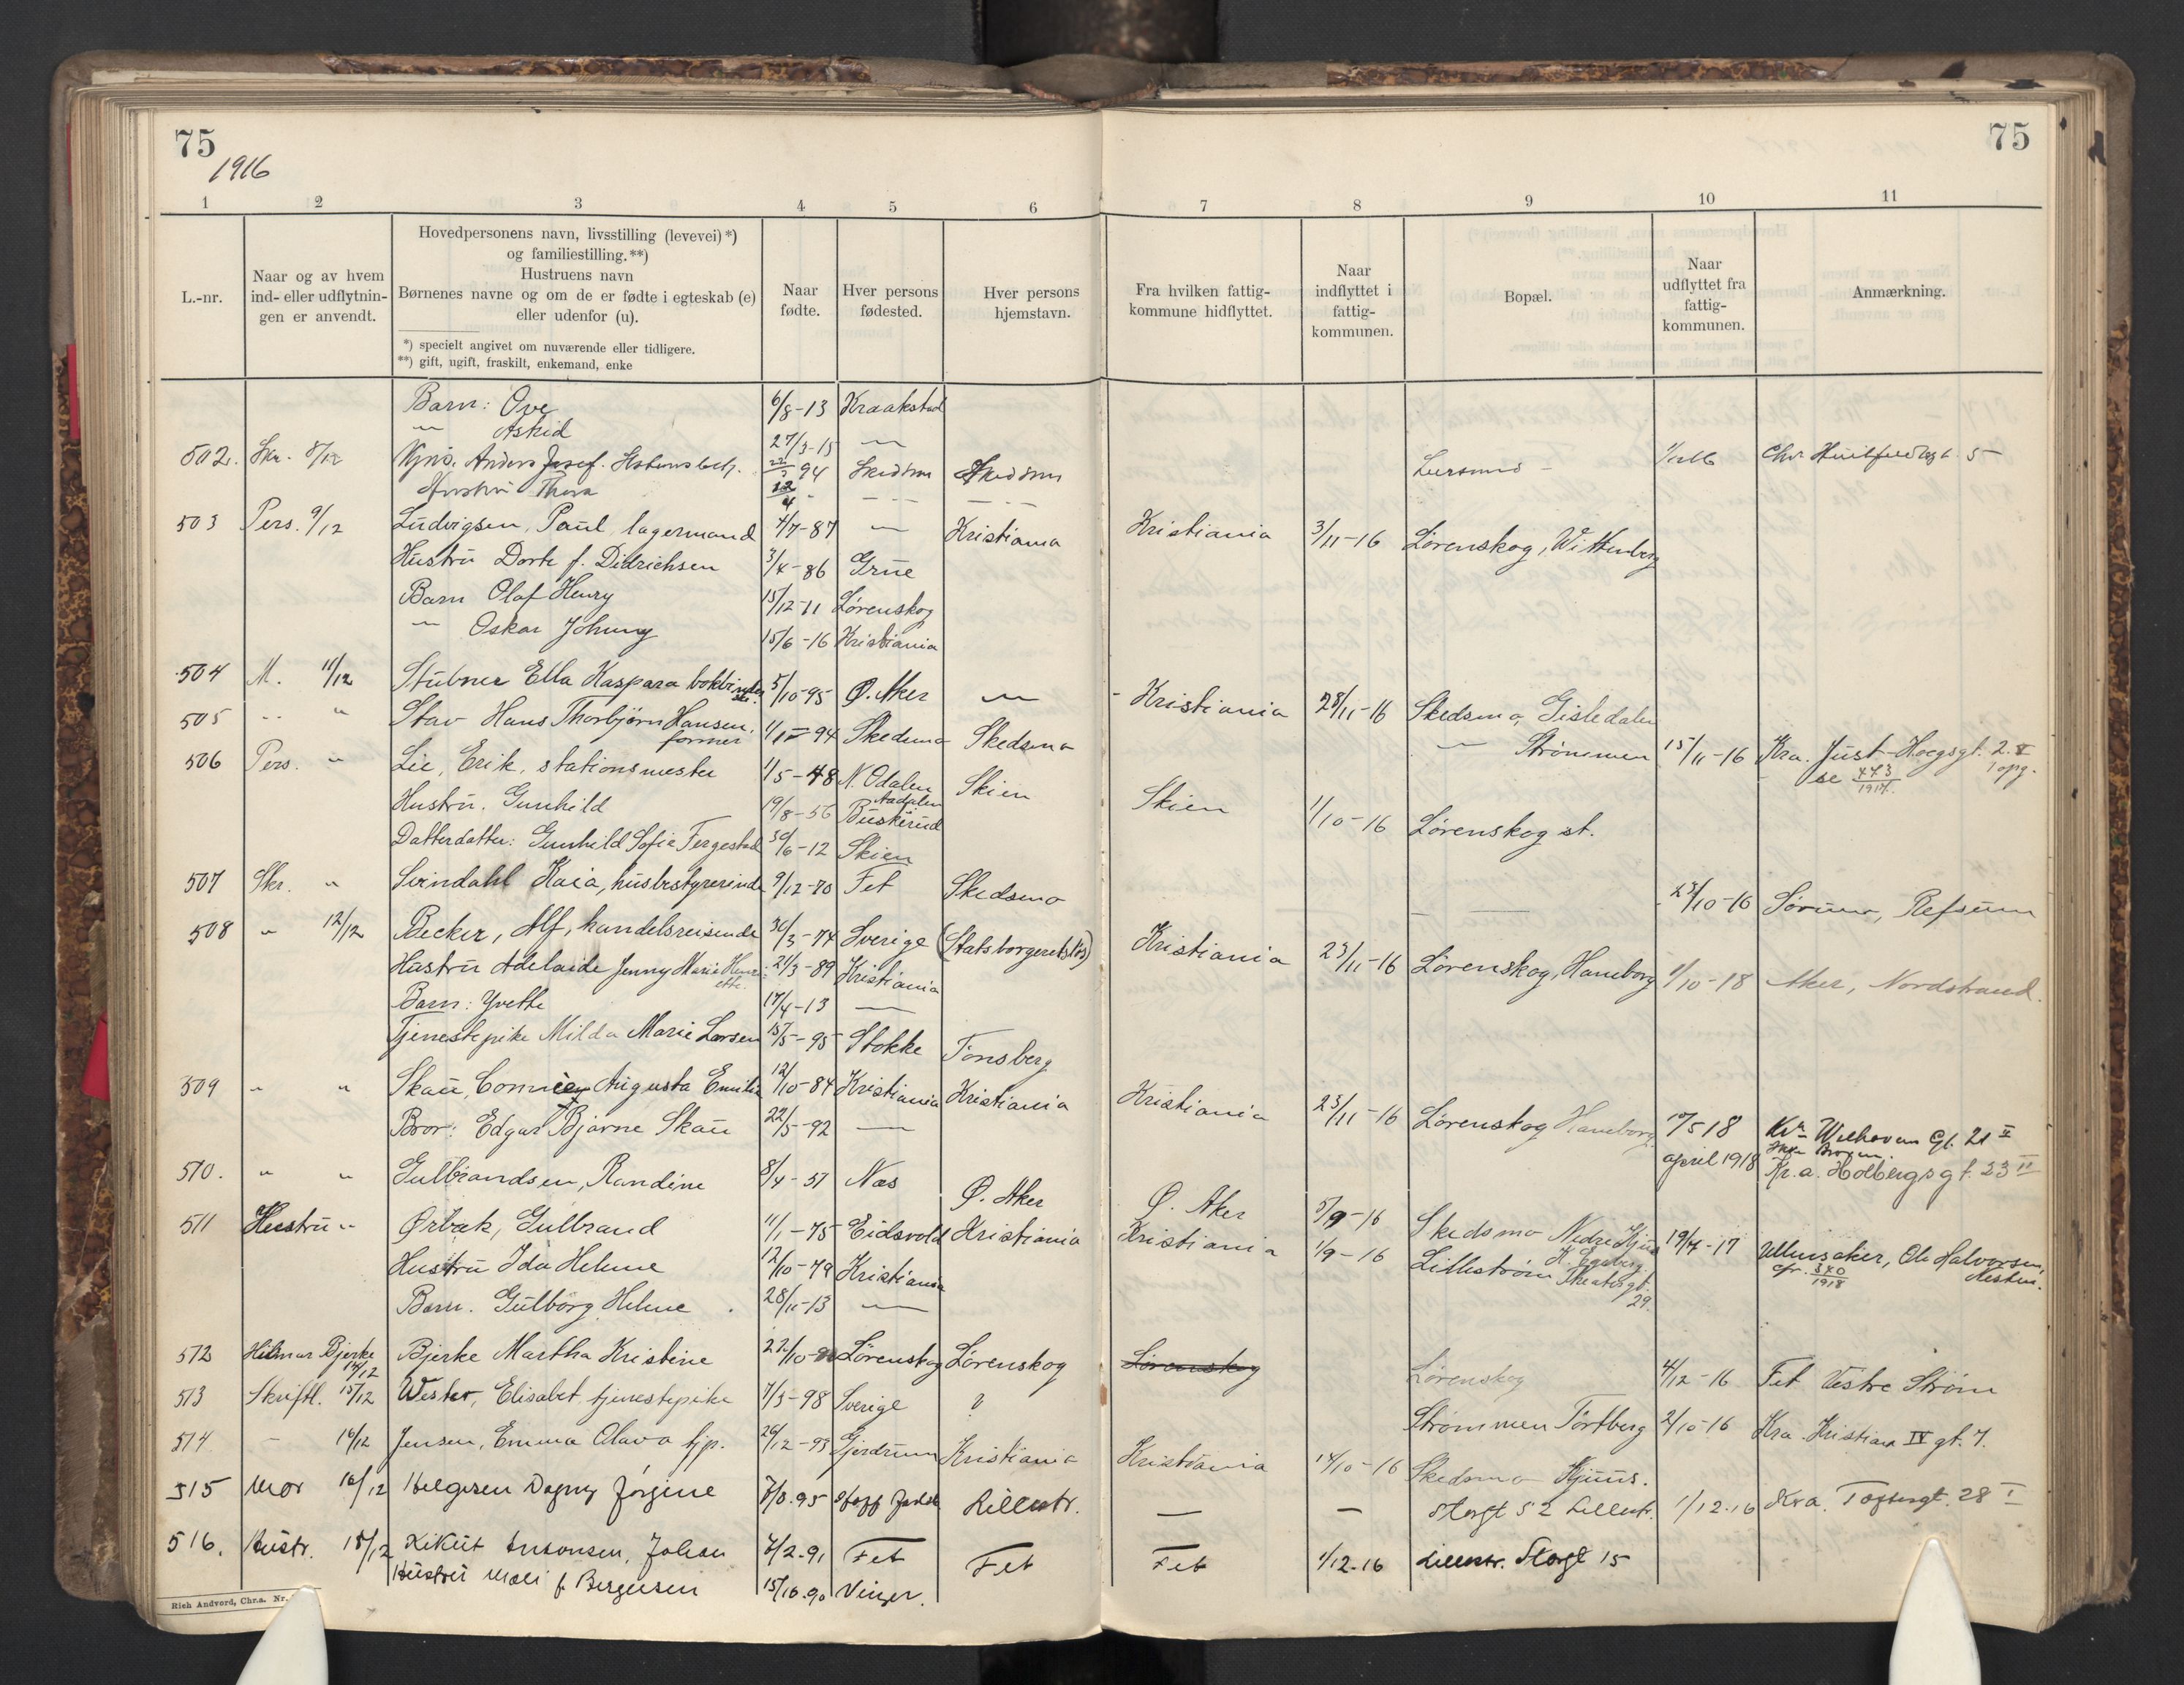 75
1916
75
1 2 3 4 5 6 7 8 9 10 11
L.-nr.
Naar og av hvem ind- eller udflytnin-gen er anvendt.
Hovedpersonens navn, livsstilling (levevei)*)
og familiestilling.**)
Hustruens navn
Børnenes navne og om de er fødte i egteskab (e)
eller udenfor (u).
*) specielt angivet om nuværende eller tidligere.
**) gift, ugift, fraskilt, enkemand, enke
Naar fødte.
Hver persons fødested.
Hver persons hjemstavn.
Fra hvilken fattig-kommune hidflyttet.
Naar indflyttet i fattig-kommunen.
Bopæl.
Naar udflyttet fra fattig-kommunen.
Anmærkning.
Barn: Ove 6/8-13 Kraakstad
" Astrid 27/3-15 "
502. Skr. 8/12 Anders Josef 94 Skedsmo Skedsmo
Hustru Thora
503 Pers. 9/12 Ludvigsen, Paul, lagermand 4/7-87 " Kristiania Kristiania 3/11-16 Lørenskog, Wittenberg
Hustru Dorte f. Didrichsen 3/4-86 Grue
Barn Olaf Henry 15/12-11 Lørenskog
" Oskar Johnny 15/6-16 Kristiania
504 M. 11/12 Stubner Ella Kaspara 5/10-95 Ø. Aker " - Kristiania 28/11-16 Skedsmo, Gistedalen
505 " " Stav Hans Thorbjørn Hansen, former 94 Skedsmo Skedsmo " Strømmen 15/11-16 Kra. Just Hoegsgt. 2. I opg.
se 443/1917.
506 Pers. " Lie, Erik, stationsmester 1/5-48 N. Odalen Skien Skien 1/10-16 Lørenskog st.
Hustru. Gunhild 19/8-56 Aadalen Buskerud
Datterdatter: Gunhild Sofie Fergestad 30/6-12 Skien
507 Skr. " Svindahl Kaia, husbestyrerinde 9/12-70 Fet Skedsmo 23/10-16 Sørum, Refsum
508 " 12/12 Becker, Alf, handelsreisende 30/3-74 Sverige (Statsborgerretsløs) Kristiania 23/11-16 Lørenskog, Haneborg 1/10-18 Aker, Nordstrand.
Hustru Adelaide Jenny Marie Henri-ette. 21/3-89 Kristiania
Barn: Yvette 17/4-13 "
Tjenestepike Milda Marie Larsen 15/5-95 Stokke Tønsberg
509 " " Skau, Augusta Emilie 12/10-84 Kristiania Kristiania Kristiania 23/11-16 Lørenskog Haneborg 10/5 18 Kra Welhavens Gt. 21 II
Bror: Edgar Bjarne Skau 22/5-92 " april 1918 Kr.a. Holbergsgt. 23 II
510. " " Gulbrandsen, Randine 8/4-51 Nes Ø. Aker Ø. Aker 5/9-16 Skedsmo Nedre Hjus 19/4-17 Ullensaker, Ole Halvorsen,
511 Hustru " Ørbæk, Gulbrand 11/1-75 Eidsvold Kristiania Kristiania 1/9-16 Lillestrøm Theatergt. 29. 340/1918
Hustru Ida Helene 12/10-79 Kristiania
Barn. Gulborg Helene. 28/11-13 "
512 Hilmar Bjerke 14/12 Bjerke Martha Kristine Lørenskog Lørenskog Lørenskog Lørenskog 4/12-16 Fet Vestre Strøm
513 Skriftl. 15/12 Wester, Elisabet, tjenestepike 7/3-98 Sverige ? Strømmen Tortberg 2/10-16 Kra. Kristian IV gt. 7.
514 - 16/12 Jensen, Emma Olava tjp. 26/12-93 Gjerdrum Kristiania Kristiania 14/10-16 Skedsmo Hjuus.
515 Mor 16/12 Helgesen Dagny Jørgine 7/8.95 Lillestr. — — Storgt 52 Lillestr. 1/12.16 Kra. Toftesgt. 28 I
516. Hustr. 18/12 Kikut Antonsen, Johan 7/2-91 Fet Fet Fet 1/12-16 Lillestr. Storgt 15
Hustru Mali f. Bergersen 15/10.90 Vinger.
Rich Andvord, Chr.a. Nr.